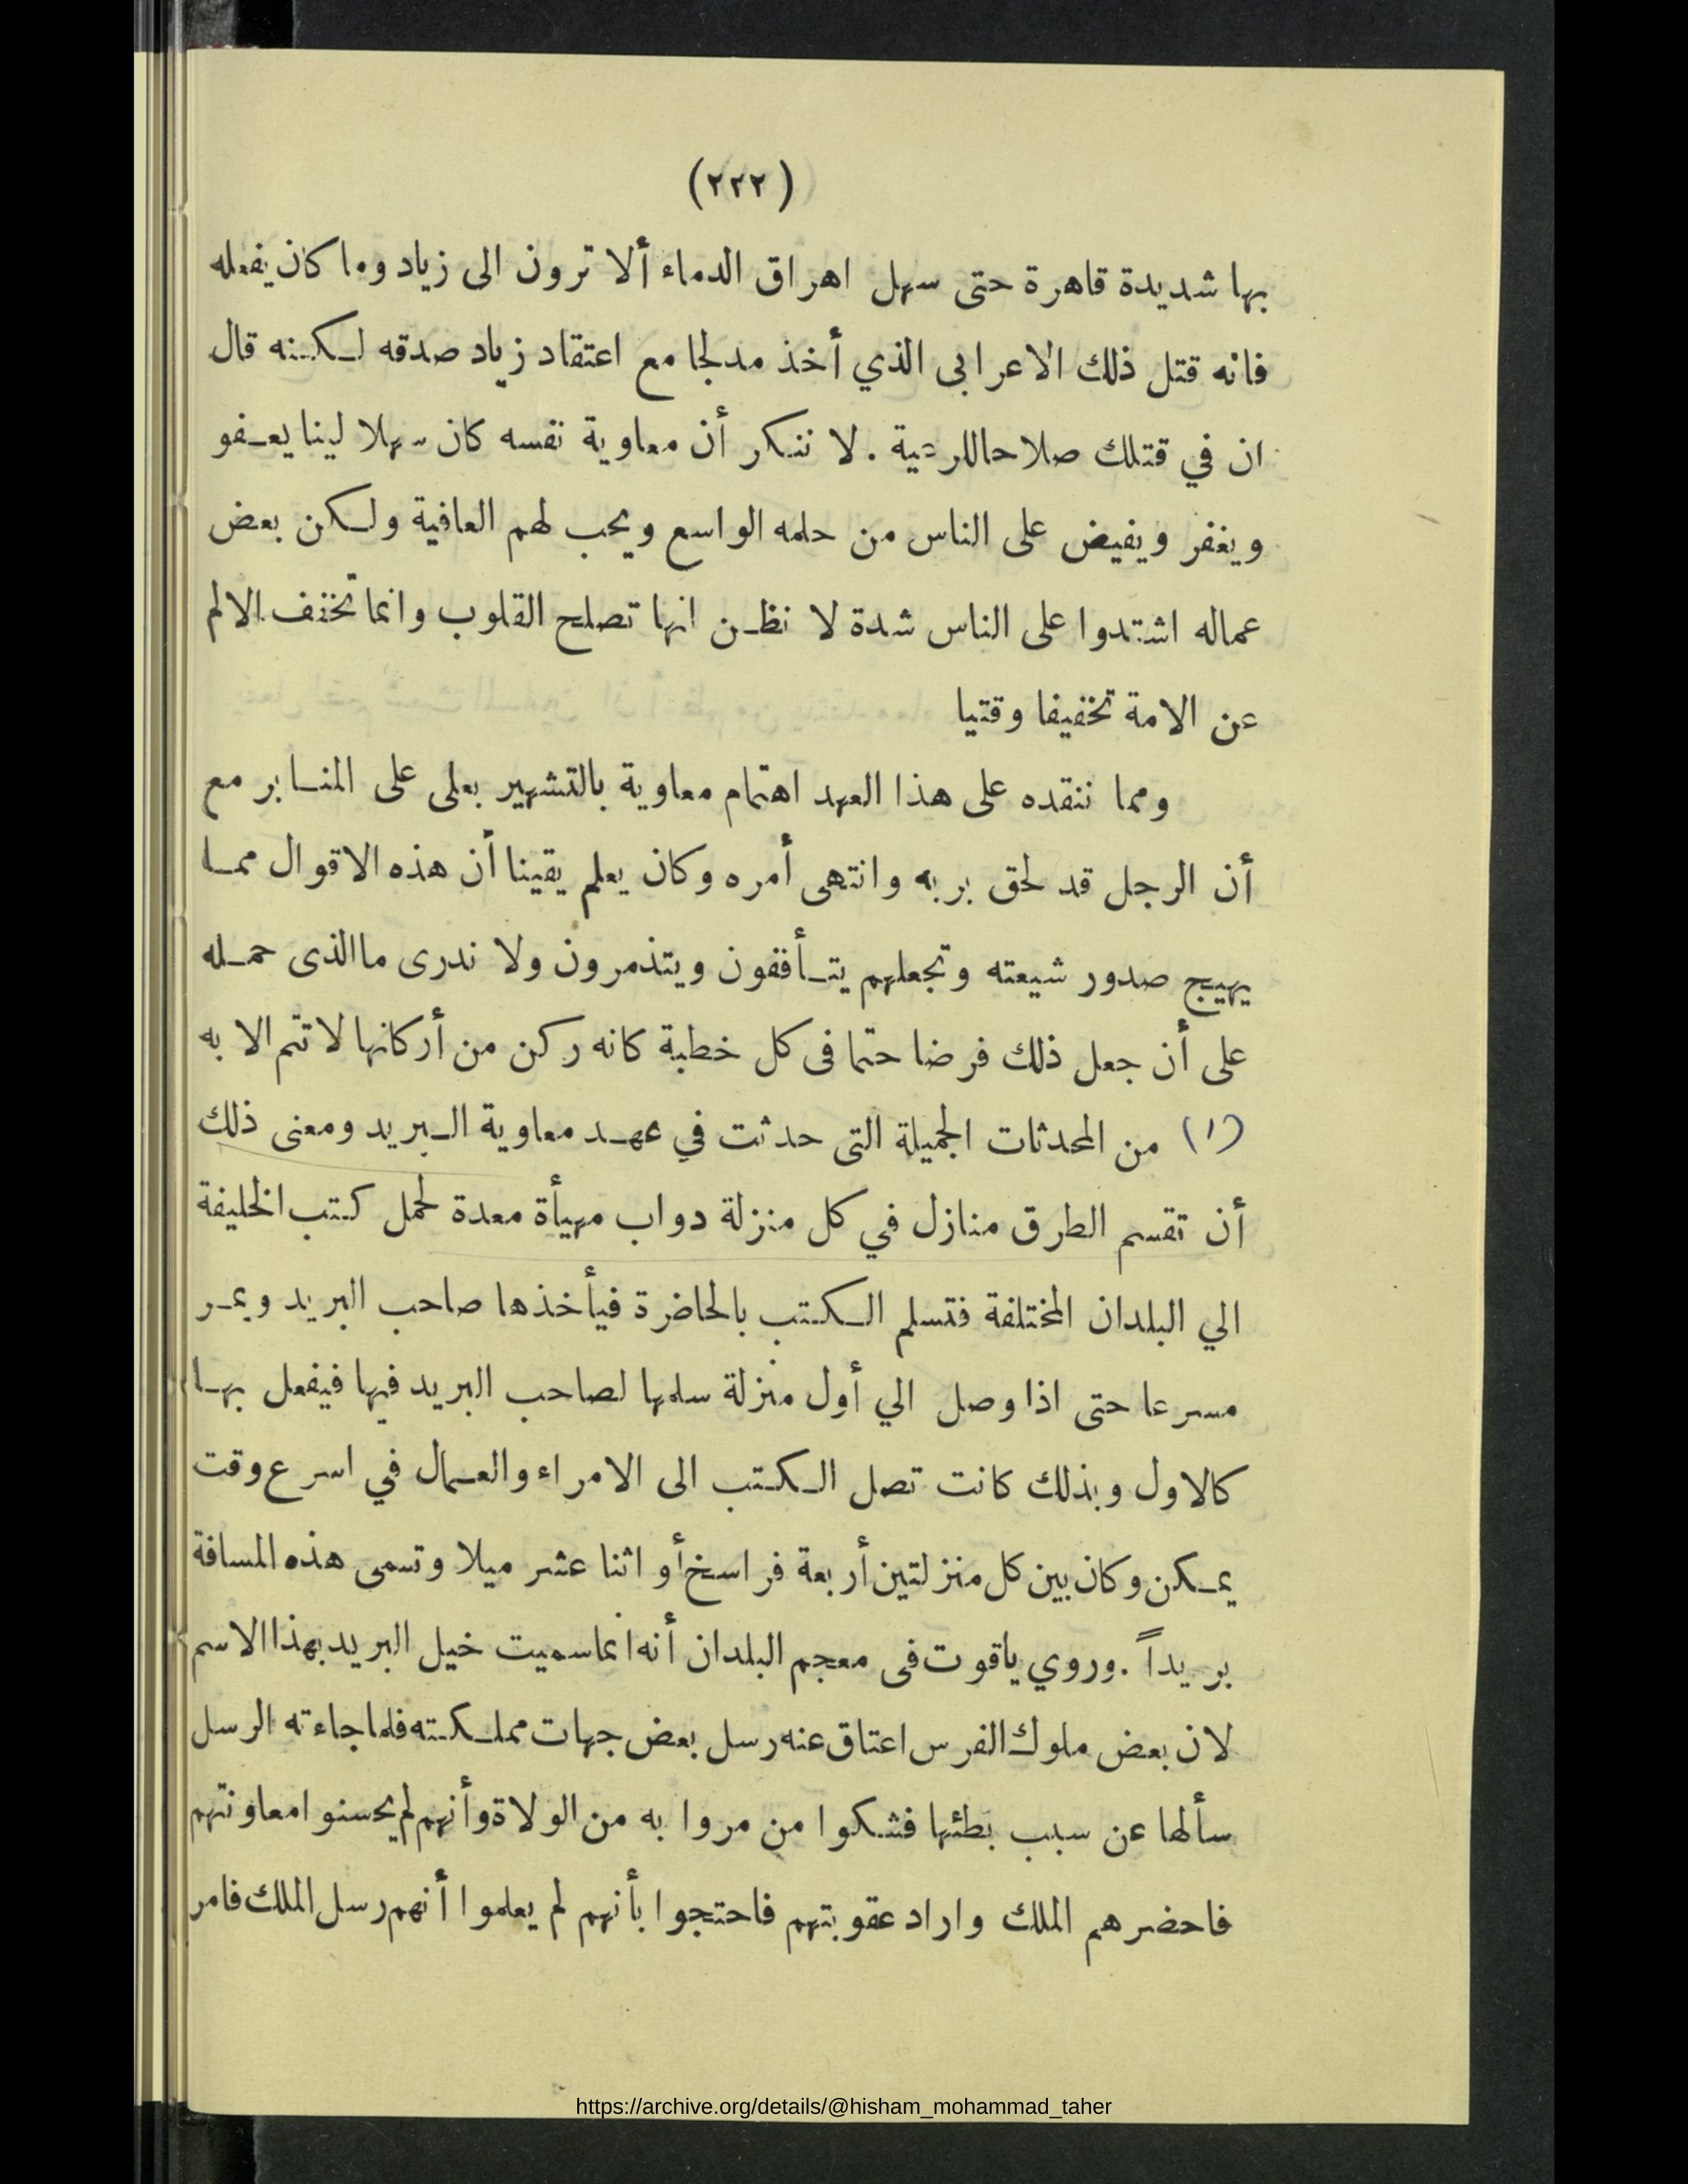 (٢٢٢)
بها شديدة قاهرة حتى سهل اهراق الدماء ألا ترون الى زياد وما كان يفعله
فانه قتل ذلك الاعرابى الذي أخذ مدلجا مع اعتقاد زياد صدقه لكنه قال
ان في قتلك صلاحا للرعية . لا ننكر أن معاوية نفسه كان سهلا لينا يعفو
ويغفر ويفيض على الناس من حلمه الواسع ويحب لهم العافية ولكن بعض
عماله اشتدوا على الناس شدة لا نظن انها تصلح القلوب وانما تخفف الالم
عن الامة تخفيفا وقتيا
ومما ننقده على هذا العهد اهتمام معاوية بالتشهير بعلى على المنابر مع
أن الرجل قد لحق بربه وانتهى أمره وكان يعلم يقينا أن هذه الاقوال مما
يهيج صدور شيعته وتجعلهم يتأففون ويتذمرون ولا ندرى ما الذى حمله
على أن جعل ذلك فرضا حتما فى كل خطبة كانه ركن من أركانها لا تتم الا به
(١) من المحدثات الجميلة التى حدثت في عهد معاوية البريد ومعنى ذلك
أن تقسم الطرق منازل في كل منزلة دواب مهيأة معدة لحمل كتب الخليفة
الي البلدان المختلفة فتسلم الكتب بالحاضرة فيأخذها صاحب البريد ويمر
مسرعا حتى اذا وصل الي أول منزلة سلمها لصاحب البريد فيها فيفعل بها
كالاول وبذلك كانت تصل الكتب الى الامراء والعمال في اسرع وقت
يمكن وكان بين كل منزلتين أربعة فراسخ أو اثنا عشر ميلا وتسمى هذه المسافة
بريداً . وروي ياقوت فى معجم البلدان أنه انما سميت خيل البريد بهذا الاسم
لان بعض ملوك الفرس اعتاق عنه رسل بعض جهات مملكته فلما جاءته الرسل
سألها عن سبب بطئها فشكوا من مروا به من الولاة وأنهم لم يحسنوا معاونتهم
فاحضرهم الملك واراد عقوبتهم فاحتجوا بأنهم لم يعلموا أنهم رسل الملك فامر
https://archive.org/details/@hisham_mohammad_taher